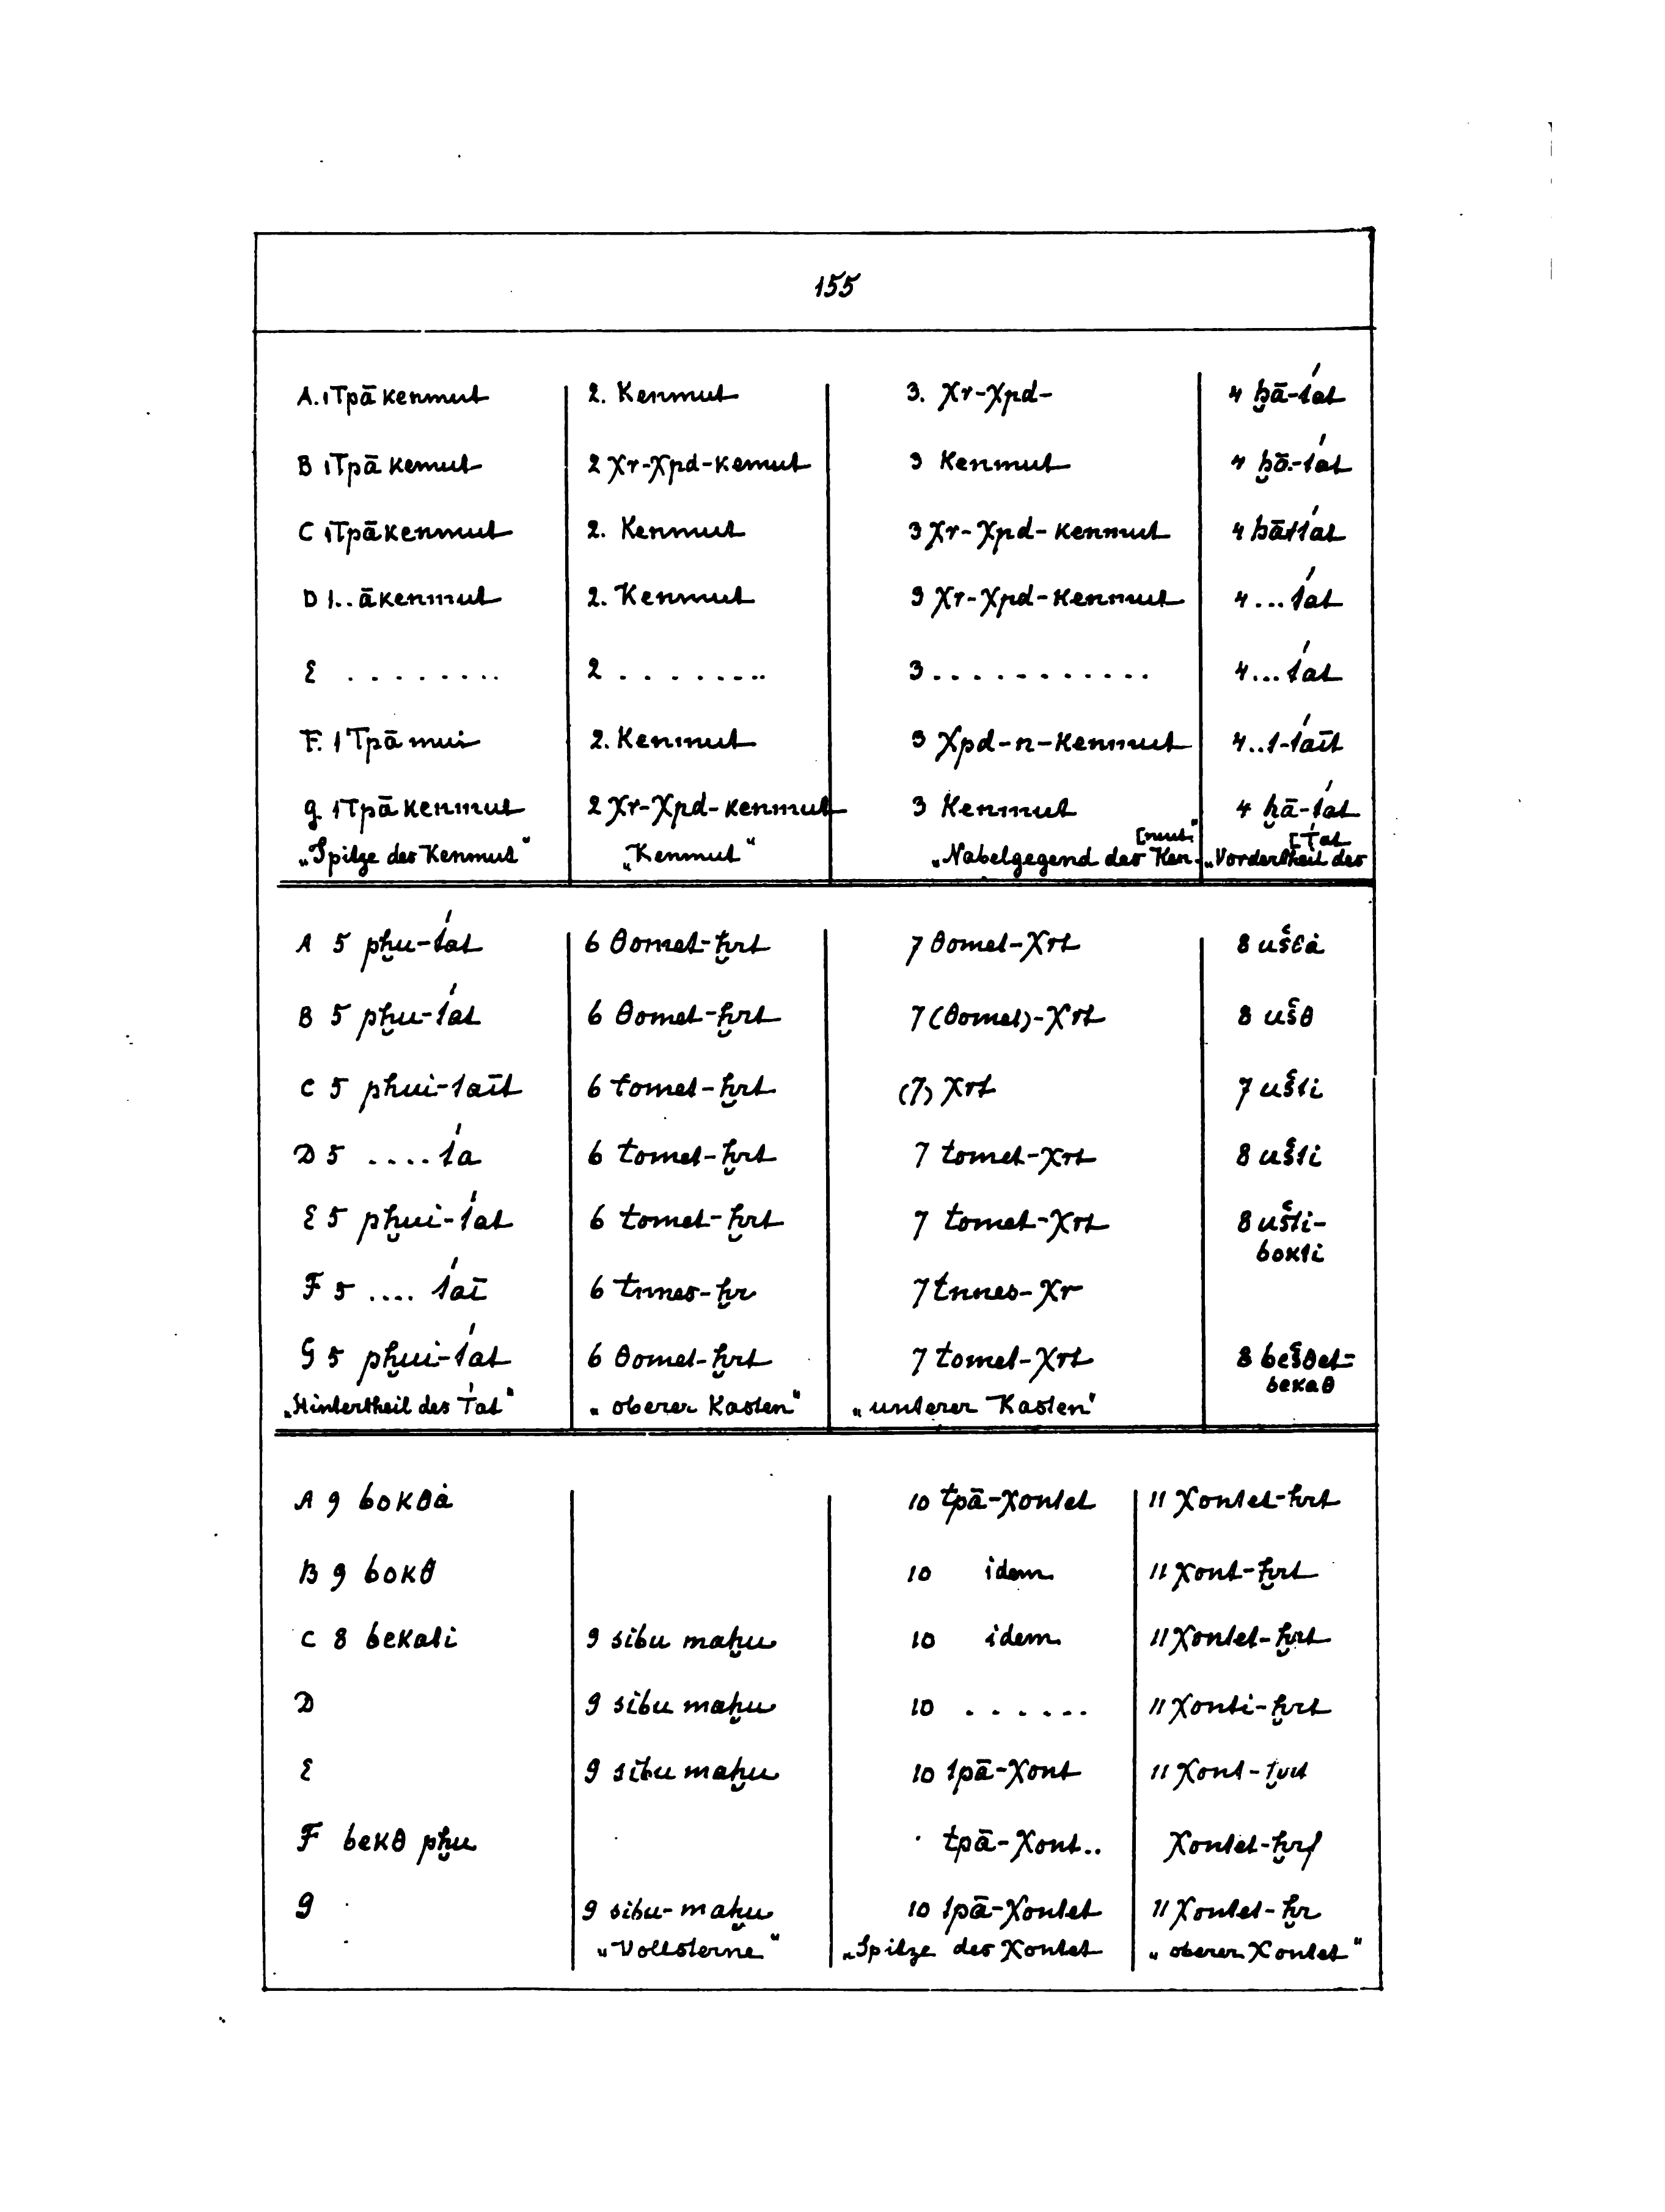 155
A. 1 Tpā Kenmut 2. Kenmut 3. Xr-Xpd- 4 ḫā-t́at
B 1 Tpā Kemut 2 Xr-Xpd-Kemut 3 Kenmut 4 ḫā-t́at
C 1 Tpā Kenmut 2. Kenmut 3 Xr-Xpd-Kenmut 4 hātt́at
D 1..āKenmut 2. Kenmut 3 Xr-Xpd-Kenmut 4...t́at
E ........ 2 ........ 3............ 4...t́at
F. 1 Tpā mui 2. Kenmut 3 Xpd-n-Kenmut 4..t-t́aīt
G 1 Tpā Kenmut 2 Xr-Xpd-Kenmut 3 Kenmut 4 ḫā-t́at
[mut" [T́at
„Spitze des Kenmut" „Kenmut" „Nabelgegend des Ken- „Vordertheil des
A 5 pḫu-t́at 6 θomet-ḫrt 7 θomet-Xrt 8 uštȧ
B 5 pḫu-t́at 6 θomet-ḫrt 7 (θomet)-Xrt 8 ušθ
C 5 phui-taīt 6 tomet-ḫrt (7) Xrt 7 ušti
D 5 ....t́a 6 tomet-ḫrt 7 tomet-Xrt 8 ušti
E 5 pḫui-t́at 6 tomet-ḫrt 7 tomet-Xrt 8 ušti-
bokti
F 5 .... t́aī 6 tmes-ḫr 7 tnnes-Xr
G 5 pḫui-t́at 6 θomet-ḫrt 7 tomet-Xrt 8 bešθet=
bekaθ
„Hintertheil des T́at" „oberer Kasten" „unterer Kasten"
A 9 bokθȧ 10 tpā-Xontet 11 Xontet-hrt
B 9 bokθ 10 idem 11 Xont-ḫrt
C 8 bekati 9 sibu maḫu 10 idem 11 Xontet-ḫrt
D 9 sibu maḫu 10 ...... 11 Xonti-ḫrt
E 9 sibu maḫu 10 tpā-Xont 11 Xont-ḫrt
F bekθ pḫu tpā-Xont.. Xontet-ḫrt
G 9 sibu-maḫu 10 tpā-Xontet 11 Xontet-ḫr
„Vollsterne" „Spitze des Xontet „oberer Xontet"